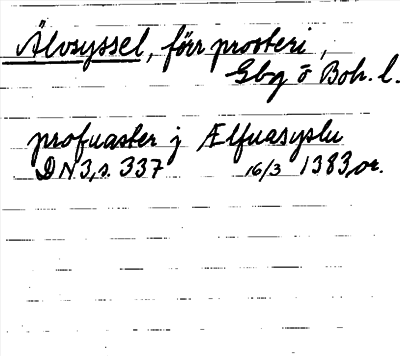 Älvsyssel, förr prosteri,
Gbg o Boh. l.
profuaster j Ælfuasyslu
DN 3, s. 337 16/3 1383, or.